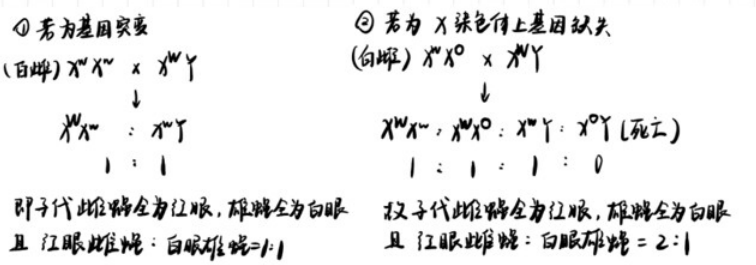 ① 若为基因突变
(白雌) XʷXʷ × XᵂY
↓
XᵂXʷ : XʷY
1 : 1
即子代雌蝇全为红眼,雄蝇全为白眼
且 红眼雌蝇:白眼雄蝇=1:1
② 若为 X 染色体上基因缺失
(白雌) XʷX⁰ × XᵂY
↓
XᵂXʷ : XᵂX⁰ : XʷY : X⁰Y (死亡)
1 : 1 : 1 : 0
故子代雌蝇全为红眼,雄蝇全为白眼
且 红眼雌蝇:白眼雄蝇 = 2:1